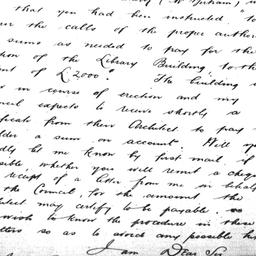 that you had been instructed to
the calls of the proper author
sums as needed to pay for the
tion of the Library Building to the
nt of £2000. The building
in course of erection and my
cil expects to receive shortly a
ficate from their Architect to pay
lder a sum on account. Will y
dly let me know by first mail if
sible whether you will remit a cheque
receipt of a letter from me in behalf
the Council for the amount the
itect may certify to be payable.
wish to know the procedure in these
tters so as to avoid any possible
I am Dear Sir